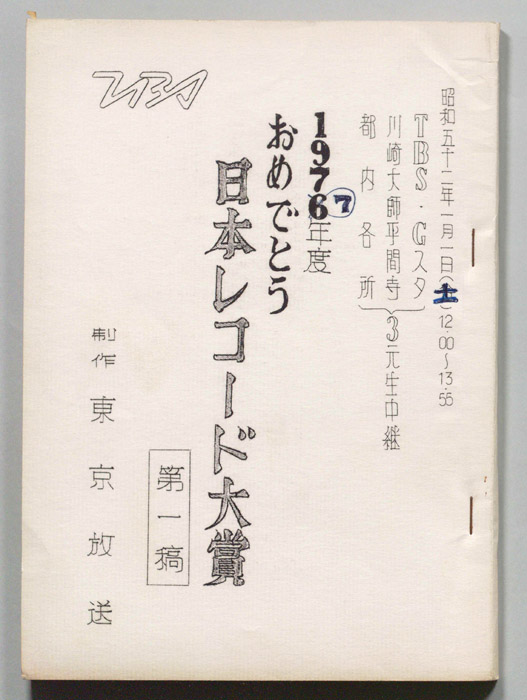 昭和五十二年一月一日(土)12.00~13.55
TBS・Gスタ
川崎大師平間寺
都内各所
3元生中継
1976⑦年度
おめでとう
日本レコード大賞
第一稿
制作 東京放送
TBS